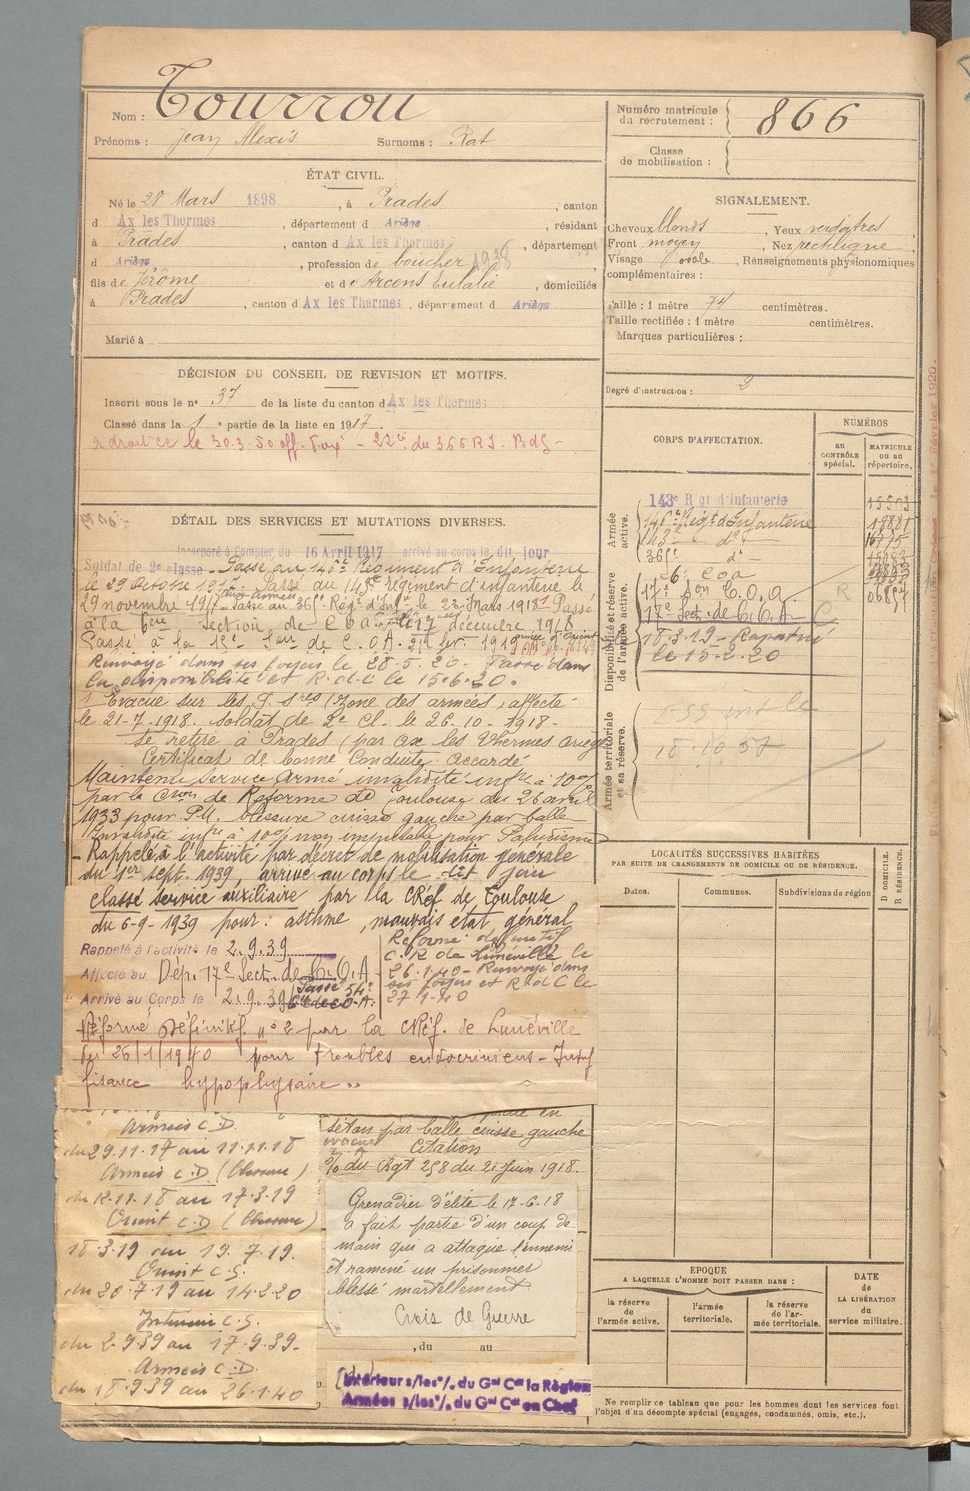 Nom : Tourrou
Prénoms : Jean Alexis Surnoms : Rat
Numéro matricule du recrutement : 866
Classe de mobilisation :
ÉTAT CIVIL.
Né le 28 Mars 1898, à Prades, canton
d Ax les Thermes, département d Ariège, résidant
à Prades, canton d Ax les Thermes, département
d Ariège, profession de boucher
fils de Jérôme et d'Arcens Eulalie, domiciliés
à Prades, canton d Ax les Thermes, département d Ariège
Marié à
SIGNALEMENT.
Cheveux blonds, Yeux verdâtres,
Front moyen, Nez rectiligne
Visage ovale, Renseignements physionomiques
complémentaires :
Taille : 1 mètre 74 centimètres.
Taille rectifiée : 1 mètre centimètres.
Marques particulières :
Degré d'instruction : 2
DÉCISION DU CONSEIL DE REVISION ET MOTIFS.
Inscrit sous le n° 37 de la liste du canton d Ax les Thermes
Classé dans la 1e partie de la liste en 1917.
le 30.3.50 off. - 22 du 366 R.I. Bdg -
CORPS D'AFFECTATION.
NUMÉROS
au CONTRÔLE spécial.
MATRICULE ou au répertoire.
Armée active.
143e Rgt d'Infanterie
140e Régt d'Infanterie
143e do
36e do
6e coa
Disponibilité et réserve de l'armée active.
17e Son C.O.a
17e Sect. de C.O.A
18-3-19 - Rapatrié
le 15-2-20
Armée territoriale et sa réserve.
DÉTAIL DES SERVICES ET MUTATIONS DIVERSES.
Incorporé à compter du 16 Avril 1917 arrivé au corps le dit jour
Soldat de 2e classe - Passé au 140e Régiment d'Infanterie
le 29 Octobre 1917. Passé au 143e régiment d'infanterie le
29 novembre 1917 aux armées Passé au 36e Régt d'Inf. le 23 Mars 1918 Passé
à la 6eme Section de C O a le 17 décembre 1918
Passé à la 15e Son de C.O.A. 21 fév. 1919
Renvoyé dans ses foyers le 28-5-20 - Passé dans
la disponibilité et R.d.C le 15.6.20.
Evacué sur les (Zone des armées) affecté
le 21-7-1918. Soldat de 2e Cl. le 26-10-1918-
Se retire à Prades (par Ax les Thermes Ariège
Certificat de bonne Conduite Accordé
Maintenu Service Armé invalidité infre à 10%
par la Cion de Réforme de Toulouse du 26 avril
1933 pour P.M. blessure cuisse gauche par balle
Invalidité infre à 10% non imputable pour Paludisme
- Rappelé à l'activité par décret de mobilisation générale
du 1er sept. 1939, arrivé au corps le dit jour
classé service auxiliaire par la CRéf de Toulouse
du 6-9-1939 pour : asthme, mauvais état général
Rappelé à l'activité le 2.9.39
Affecté au Dép. 17e Sect. de C.O.A
Arrivé au Corps le 2.9.39
Réformé définitif
C.R de Lunéville le
26.1.40 - Renvoyé dans
ses foyers et R d C le
27-1-40
Réformé Définitif n° 2 par la CRéf. de Lunéville
du 26/1/1940 pour troubles endocriniens - Insuf
fisance hypophysaire
Armées C.D.
du 29.11.17 au 11.11.18
Armées C.D (Blessure)
du 12.11.18 au 17.3.19
Orient C.D (Blessure)
18.3.19 au 19.7.19.
Orient C.S.
du 20.7.19 au 14.2.20
Intérieur C.S.
du 2.9.39 au 17.9.39-
Armées C.D.
du 18.9.39 au 26.1.40
séton par balle cuisse gauche
évacué
Citation
O/ du Rgt 258 du 21 Juin 1918.
Grenadier d'élite le 17-6-18
a fait partie d'un coup de
main qui a attaqué l'ennemi
et ramené un prisonnier
blessé mortellement
Croix de Guerre
, du au
Intérieur s/les o/. du Gal Ct la Région
Armées s/les o/. du Gal Ct en Chef
LOCALITÉS SUCCESSIVES HABITÉES
PAR SUITE DE CHANGEMENTS DE DOMICILE OU DE RÉSIDENCE.
Dates.
Communes.
Subdivisions de région
D DOMICILE. R RÉSIDENCE.
EPOQUE
A LAQUELLE L'HOMME DOIT PASSER DANS :
la réserve de l'armée active.
l'armée territoriale.
la réserve de l'armée territoriale.
DATE de LA LIBÉRATION du service militaire.
Ne remplir ce tableau que pour les hommes dont les services font
l'objet d'un décompte spécial (engagés, condamnés, omis, etc.).